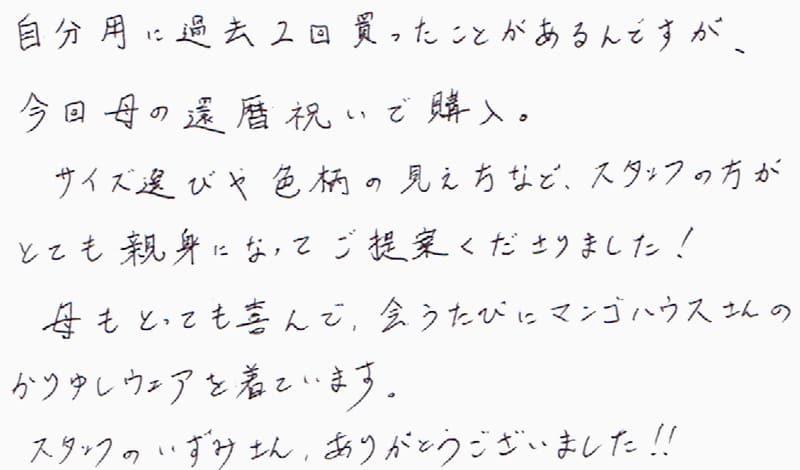 自分用に過去2回買ったことがあるんですが、
今回母の還暦祝いで購入。
サイズ選びや色柄の見え方など、スタッフの方が
とても親身になってご提案くださりました!
母もとっても喜んで、会うたびにマンゴハウスさんの
かりゆしウェアを着ています。
スタッフのいずみさん、ありがとうございました!!